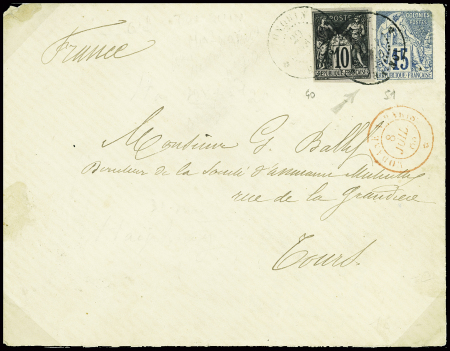 France
POSTE
10
RÉPUBLIQUE FRANÇAISE
COLONIES
15
RÉPUBLIQUE FRANÇAISE
40
51
8
JUIL
Monsieur G. Ballif
Directeur de la Société d'assurance Mutuelle
rue de la Grandière
Tours